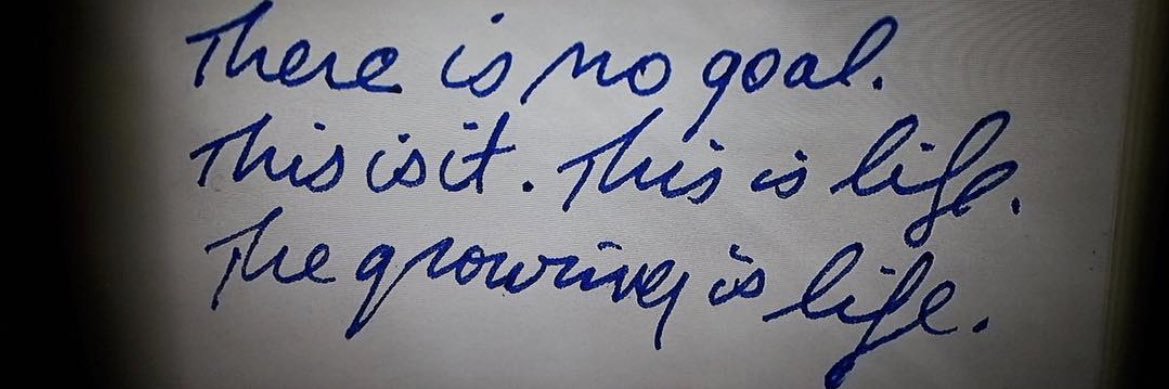 There is no goal.
This is it. This is life.
The growing is life.